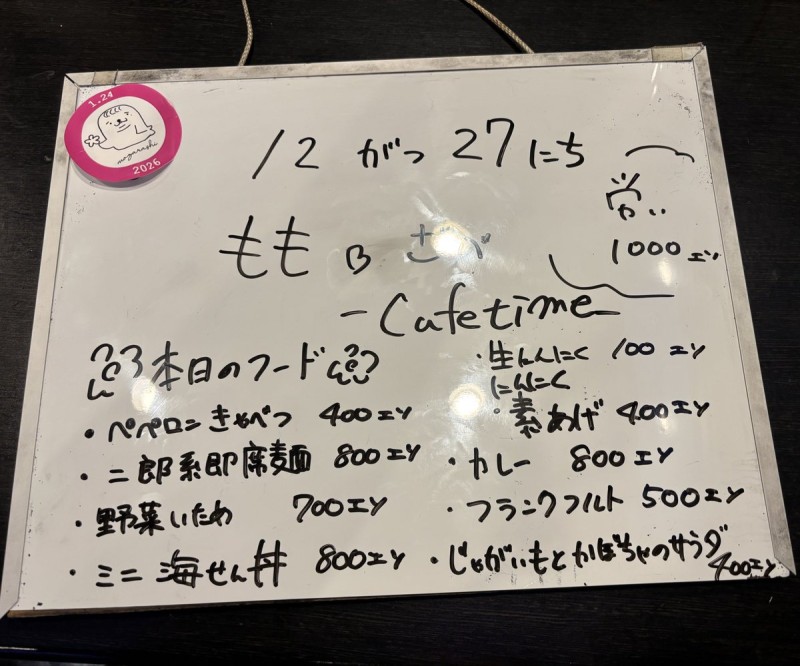 1.24
2026
12 がつ 27 にち
もも B
1000 エン
- Cafetime -
本日のフード
・ペペロンきゃべつ 400 エン
・二郎系即席麺 800 エン
・野菜いため 700 エン
・ミニ海せん丼 800 エン
・生にんにく 100 エン
・にんにく素あげ 400 エン
・カレー 800 エン
・フランクフルト 500 エン
・じゃがいもとかぼちゃのサラダ 400 エン